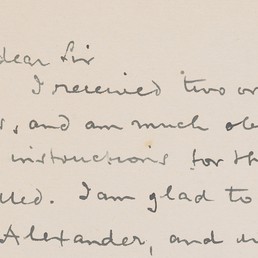 dear Sir
I received two or
and am much
instructions for th
I am glad to
Alexander, and